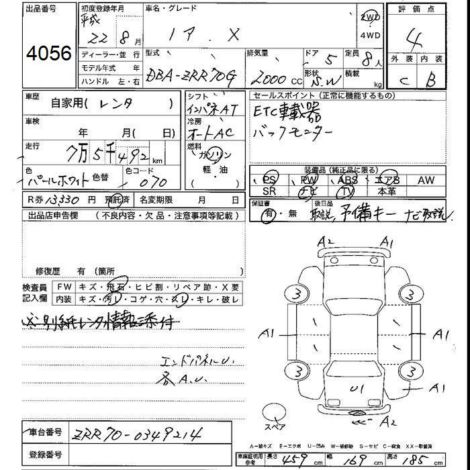 出品番号 4056
初度登録年月 平成 22年 8月
車名・グレード ノア. X
2WD 4WD
評価点 4
ディーラー・並行
モデル年式 年
ハンドル 左・右
型式 DBA-ZRR70G
排気量 2000cc
ドア 5
形状 S.W
定員 8人
積載 kg
外装 C
内装 B
車歴 自家用(レンタ)
シフト インパネAT
車検 年 月(日)
冷房 オートAC
走行 7万5千492km
燃料 ガソリン 軽油 ( )
色 パールホワイト
色替
色コード 070
R券 13330円 預託済
名変期限 月 日
セールスポイント(正常に機能するもの)
ETC車載器
バックモニター
装備品(純正品に限る)
PS PW ABS エアB AW
SR ナビ TV 本革
保証書 有・無
後日品 取説, 予備キー ナビ取説,
出品店申告欄 (不良内容・欠品・注意事項等記載)
修復歴 有(箇所 )
検査員記入欄
FW キズ・飛石・ヒビ割・リペア跡・X要
内装 キズ・汚レ・コゲ・穴・スレ・キレ・破レ
※別紙レンタ情報添付
エンドパネルU.
各A.U.
A2 A1
3 3
A1 A1
3 3
U1
A2 A1
A2
スペア
車台番号 ZRR70-0349214
登録番号
車庫証明用参考
長 459cm 幅 169cm 高 185cm